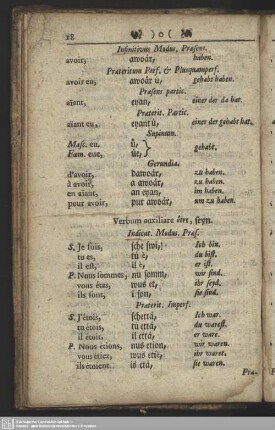 18 )o(
Infinitivus Modus, Præsens.
avoir, awoár, haben.
Præteritum Perf. & Plusquamperf.
avoir eu, awoár ü, gehabt haben.
Præsens partic.
aïant, eyan, einer der da hat.
Præterit. Partic.
aïant eu, eyant ü, einer der gehabt hat.
Supinum.
Masc. eu. ü, gehabt.
Fæm. eue, üe,
Gerundia.
d'avoir, dawoár, zu haben.
à avoir, a awoár, zu haben.
en aïant, an eyan, im haben.
pour avoir, pur awoár, um zu haben.
Verbum auxiliare être, seyn.
Indicat. Modus. Præs.
S. Je suis, sche swi, Ich bin.
tu es, tü è, du bist.
il est, il è, er ist.
P. Nous sommes, nu somm, wir sind.
vous étes, wus et, ihr seyd.
ils sont, i son, sie sind.
Præterit. Imperf.
S. J'étois, schettä, Ich war.
tu étois, tüettä, du warest.
il étoit. il että, er war.
P. Nous étions, nus etion, wir waren.
vous étiez, wus etie, ihr waret.
ils étoient. is etä, sie waren.
Præ-